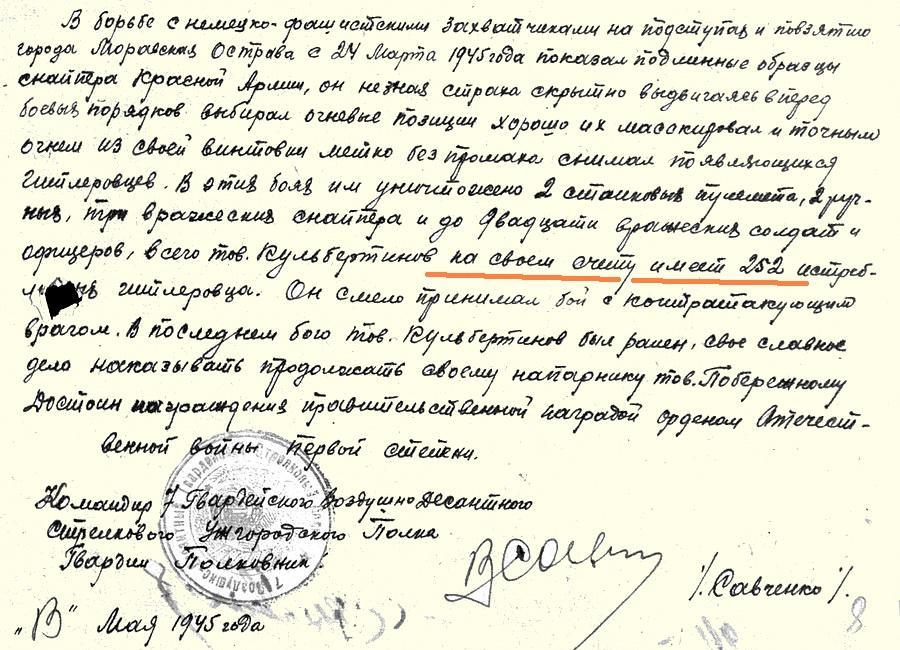 В борьбе с немецко-фашистскими захватчиками на подступах и по взятию
города Моравская Острава с 24 Марта 1945 года показал подлинные образцы
снайпера Красной Армии, он не зная страха скрытно выдвигаясь вперед
боевых порядков выбирал огневые позиции хорошо их масскировал и точным
огнем из своей винтовки метко без промаха снимал появляющихся
гитлеровцев. В этих боях им уничтожено 2 станковых пулемета, 2 руч-
ных, три вражеских снайпера и до двадцати вражеских солдат и
офицеров, всего тов. Кульбертинов на своем счету имеет 252 истреб-
ных гитлеровца. Он смело принимал бой с контратакующим
врагом. В последнем бою тов. Кульбертинов был ранен, свое славное
дело наказывать продолжать своему напарнику тов. Побережному
Достоин награждения правительственной наградой орденом Отечест-
венной войны Первой степени.
Командир 7 Гвардейского Воздушно Десантного
Стрелкового Ужгородского Полка
Гвардии Полковник:
/Савченко/.
"В" Мая 1945 года